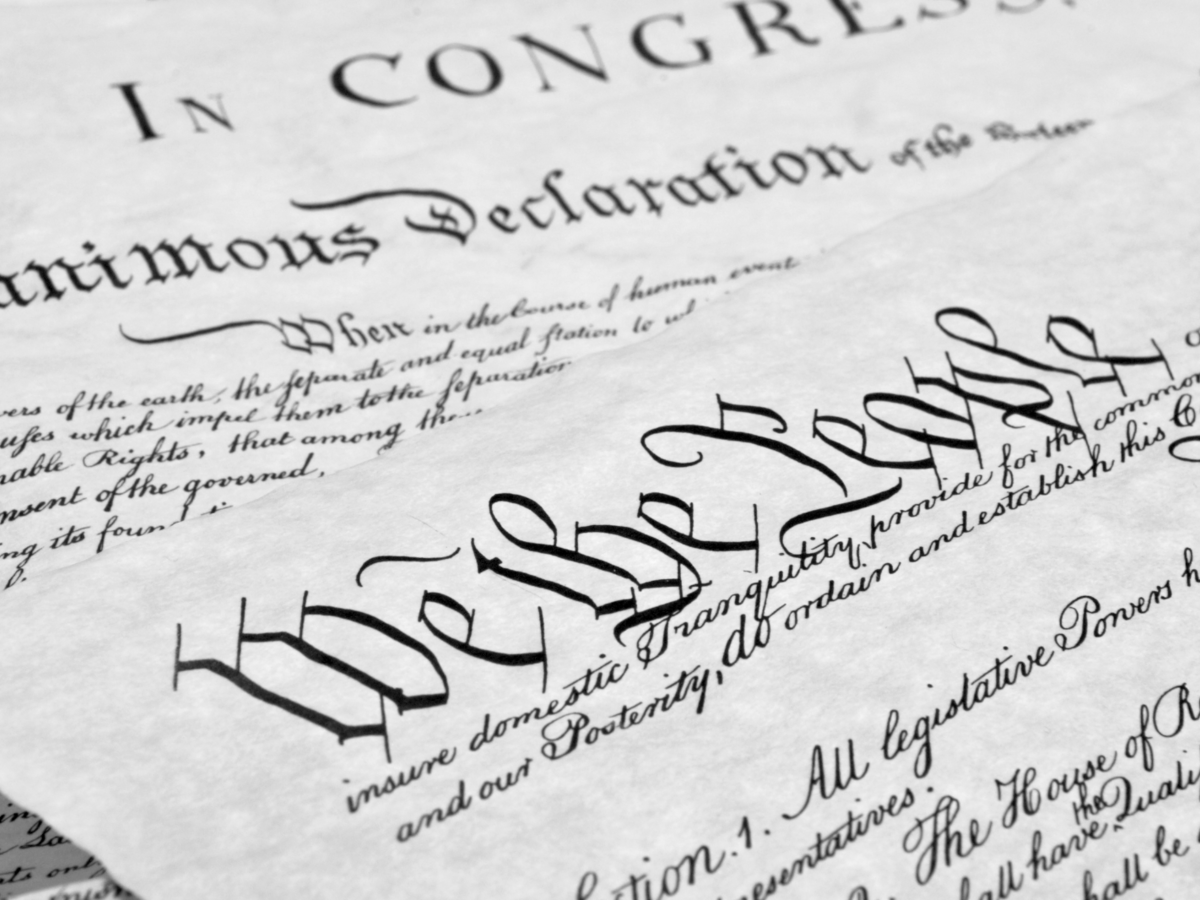 IN CONGRESS,
animous Declaration of the
When in the Course of human event
vers of the earth, the separate and equal station to wh
uses which impel them to the separation
nable Rights, that among these
nsent of the governed,
ng its found
We the People
insure domestic Tranquility, provide for the common
and our Posterity, do ordain and establish this C
ction. 1. All legislative Powers h
resentatives.
The House of R
the
all have Quali
hall be